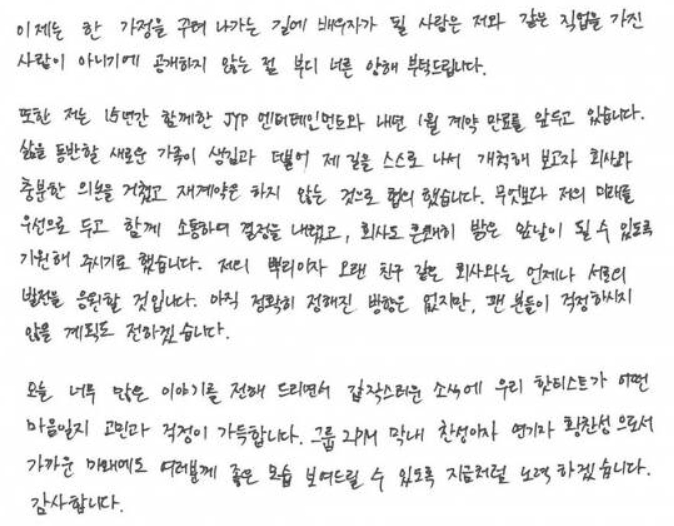 이제는 한 가정을 꾸려 나가는 길에 배우자가 될 사람은 저와 같은 직업을 가진
사람이 아니기에 공개하지 않는 점 부디 너른 양해 부탁드립니다.
또한 저는 15년간 함께한 JYP 엔터테인먼트와 내년 1월 계약 만료를 앞두고 있습니다.
삶을 동반할 새로운 가족이 생김과 더불어 제 길을 스스로 나서 개척해 보고자 회사와
충분한 의논을 거쳤고 재계약은 하지 않는 것으로 협의 했습니다. 무엇보다 저의 미래를
우선으로 두고 함께 소통하며 결정을 내렸고, 회사도 흔쾌히 밝은 앞날이 될 수 있도록
기원해 주시기로 했습니다. 저의 뿌리이자 오랜 친구 같은 회사와는 언제나 서로의
발전을 응원할 것입니다. 아직 정확히 정해진 방향은 없지만, 팬 분들이 걱정하시지
않을 계획도 전하겠습니다.
오늘 너무 많은 이야기를 전해 드리면서 갑작스러운 소식에 우리 핫티스트가 어떤
마음일지 고민과 걱정이 가득합니다. 그룹 2PM 막내 찬성이자 연기자 황찬성으로서
가까운 미래에도 여러분께 좋은 모습 보여드릴 수 있도록 지금처럼 노력 하겠습니다.
감사합니다.